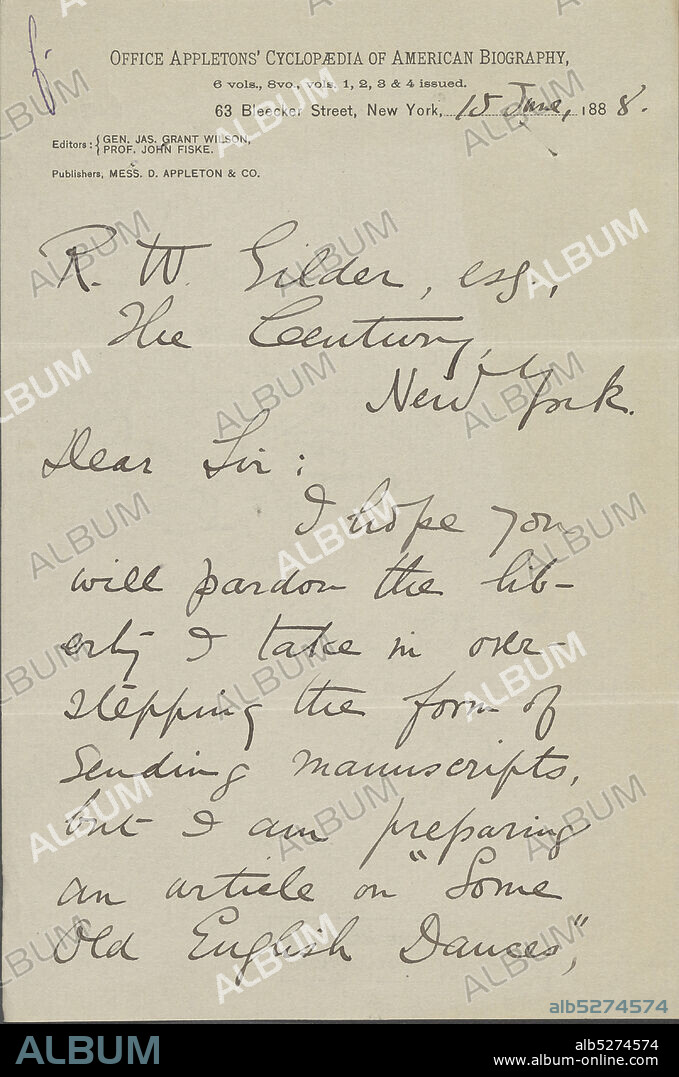 OFFICE APPLETONS' CYCLOPÆDIA OF AMERICAN BIOGRAPHY,
6 vols., 8vo, vols. 1, 2, 3 & 4 issued.
63 Bleecker Street, New York, 15 June, 1888.
Editors: { GEN. JAS. GRANT WILSON,
{ PROF. JOHN FISKE.
Publishers, MESS. D. APPLETON & CO.
R. W. Gilder, esq.,
The Century,
New York.
Dear Sir:
I hope you
will pardon the lib-
erty I take in over-
stepping the form of
sending manuscripts,
but I am preparing
an article on "Some
Old English Dances,"
alb5274574
ALBUM
alb5274574
www.album-online.com